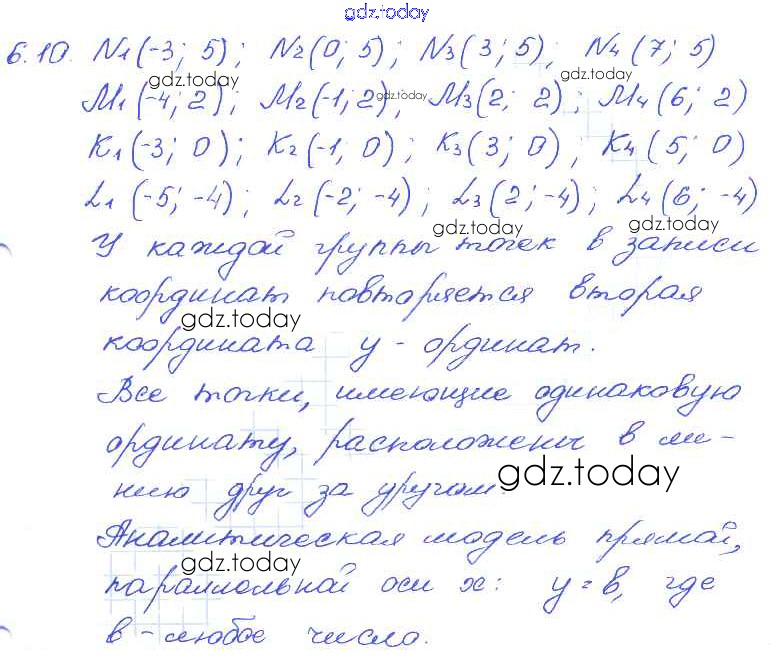 gdz.today
6.10. N1(-3; 5); N2(0; 5); N3(3; 5); N4(7; 5)
gdz.today
M1(-4; 2); M2(-1; 2); M3(2; 2); M4(6; 2)
gdz.today gdz.today
K1(-3; 0); K2(-1; 0); K3(3; 0); K4(5; 0)
L1(-5; -4); L2(-2; -4); L3(2; -4); L4(6; -4)
gdz.today gdz.today
У каждой группы точек в записи
координат повторяется вторая
gdz.today
координата y - ординат.
Все точки, имеющие одинаковую
ординату, расположены в ли-
нию друг за другом.
gdz.today
Аналитическая модель прямой,
gdz.today
параллольной оси x: y = b, где
b - любое число.